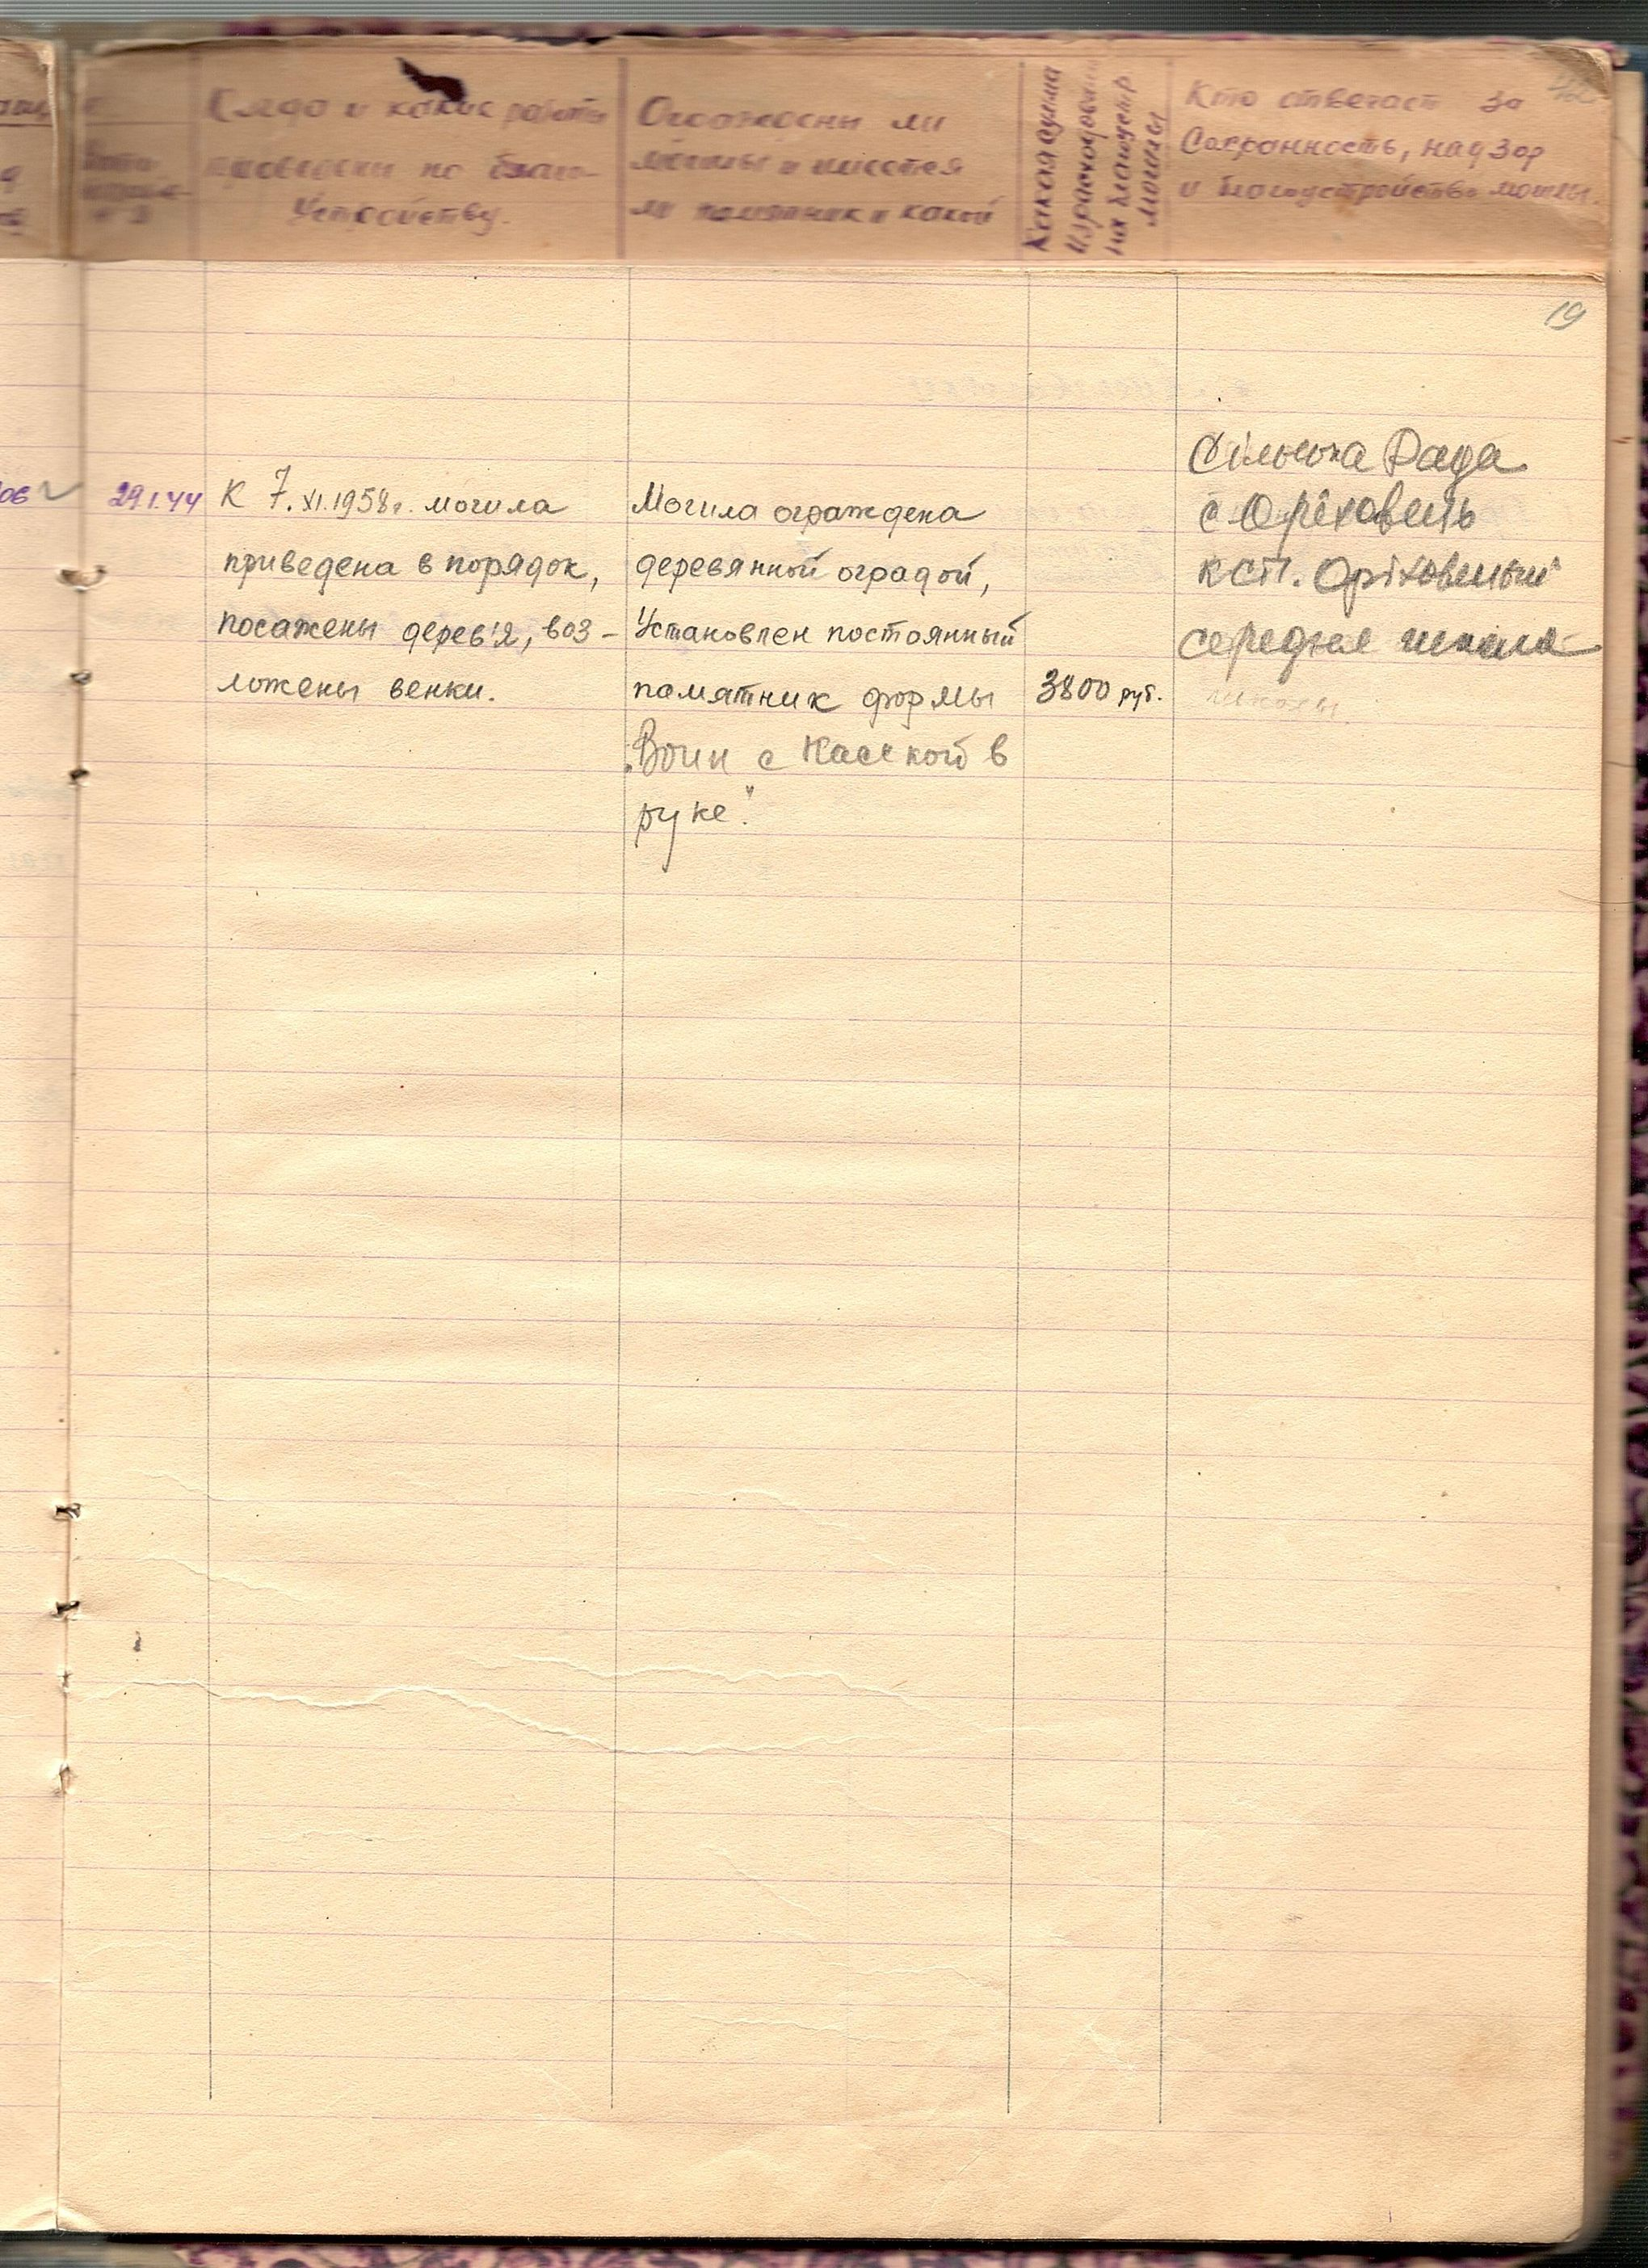 Когда и какие работы
проведены по благо-
устройству.
Огорожены ли
могилы и имеется
ли памятник и какой
Какая сумма
израсходована
на благоустр
могилы
Кто отвечает за
Сохранность, надзор
и благоустройство могилы.
19
29.1.44
К 7.XI.1958г. могила
приведена в порядок,
посажены дерев'я, воз-
ложены венки.
Могила ограждена
деревянной оградой,
Установлен постоянный
памятник формы
„Воин с Каской в
руке".
3800 руб.
Сільська Рада
с Ореховець
к сп. Оріховецький
середня школа
школы